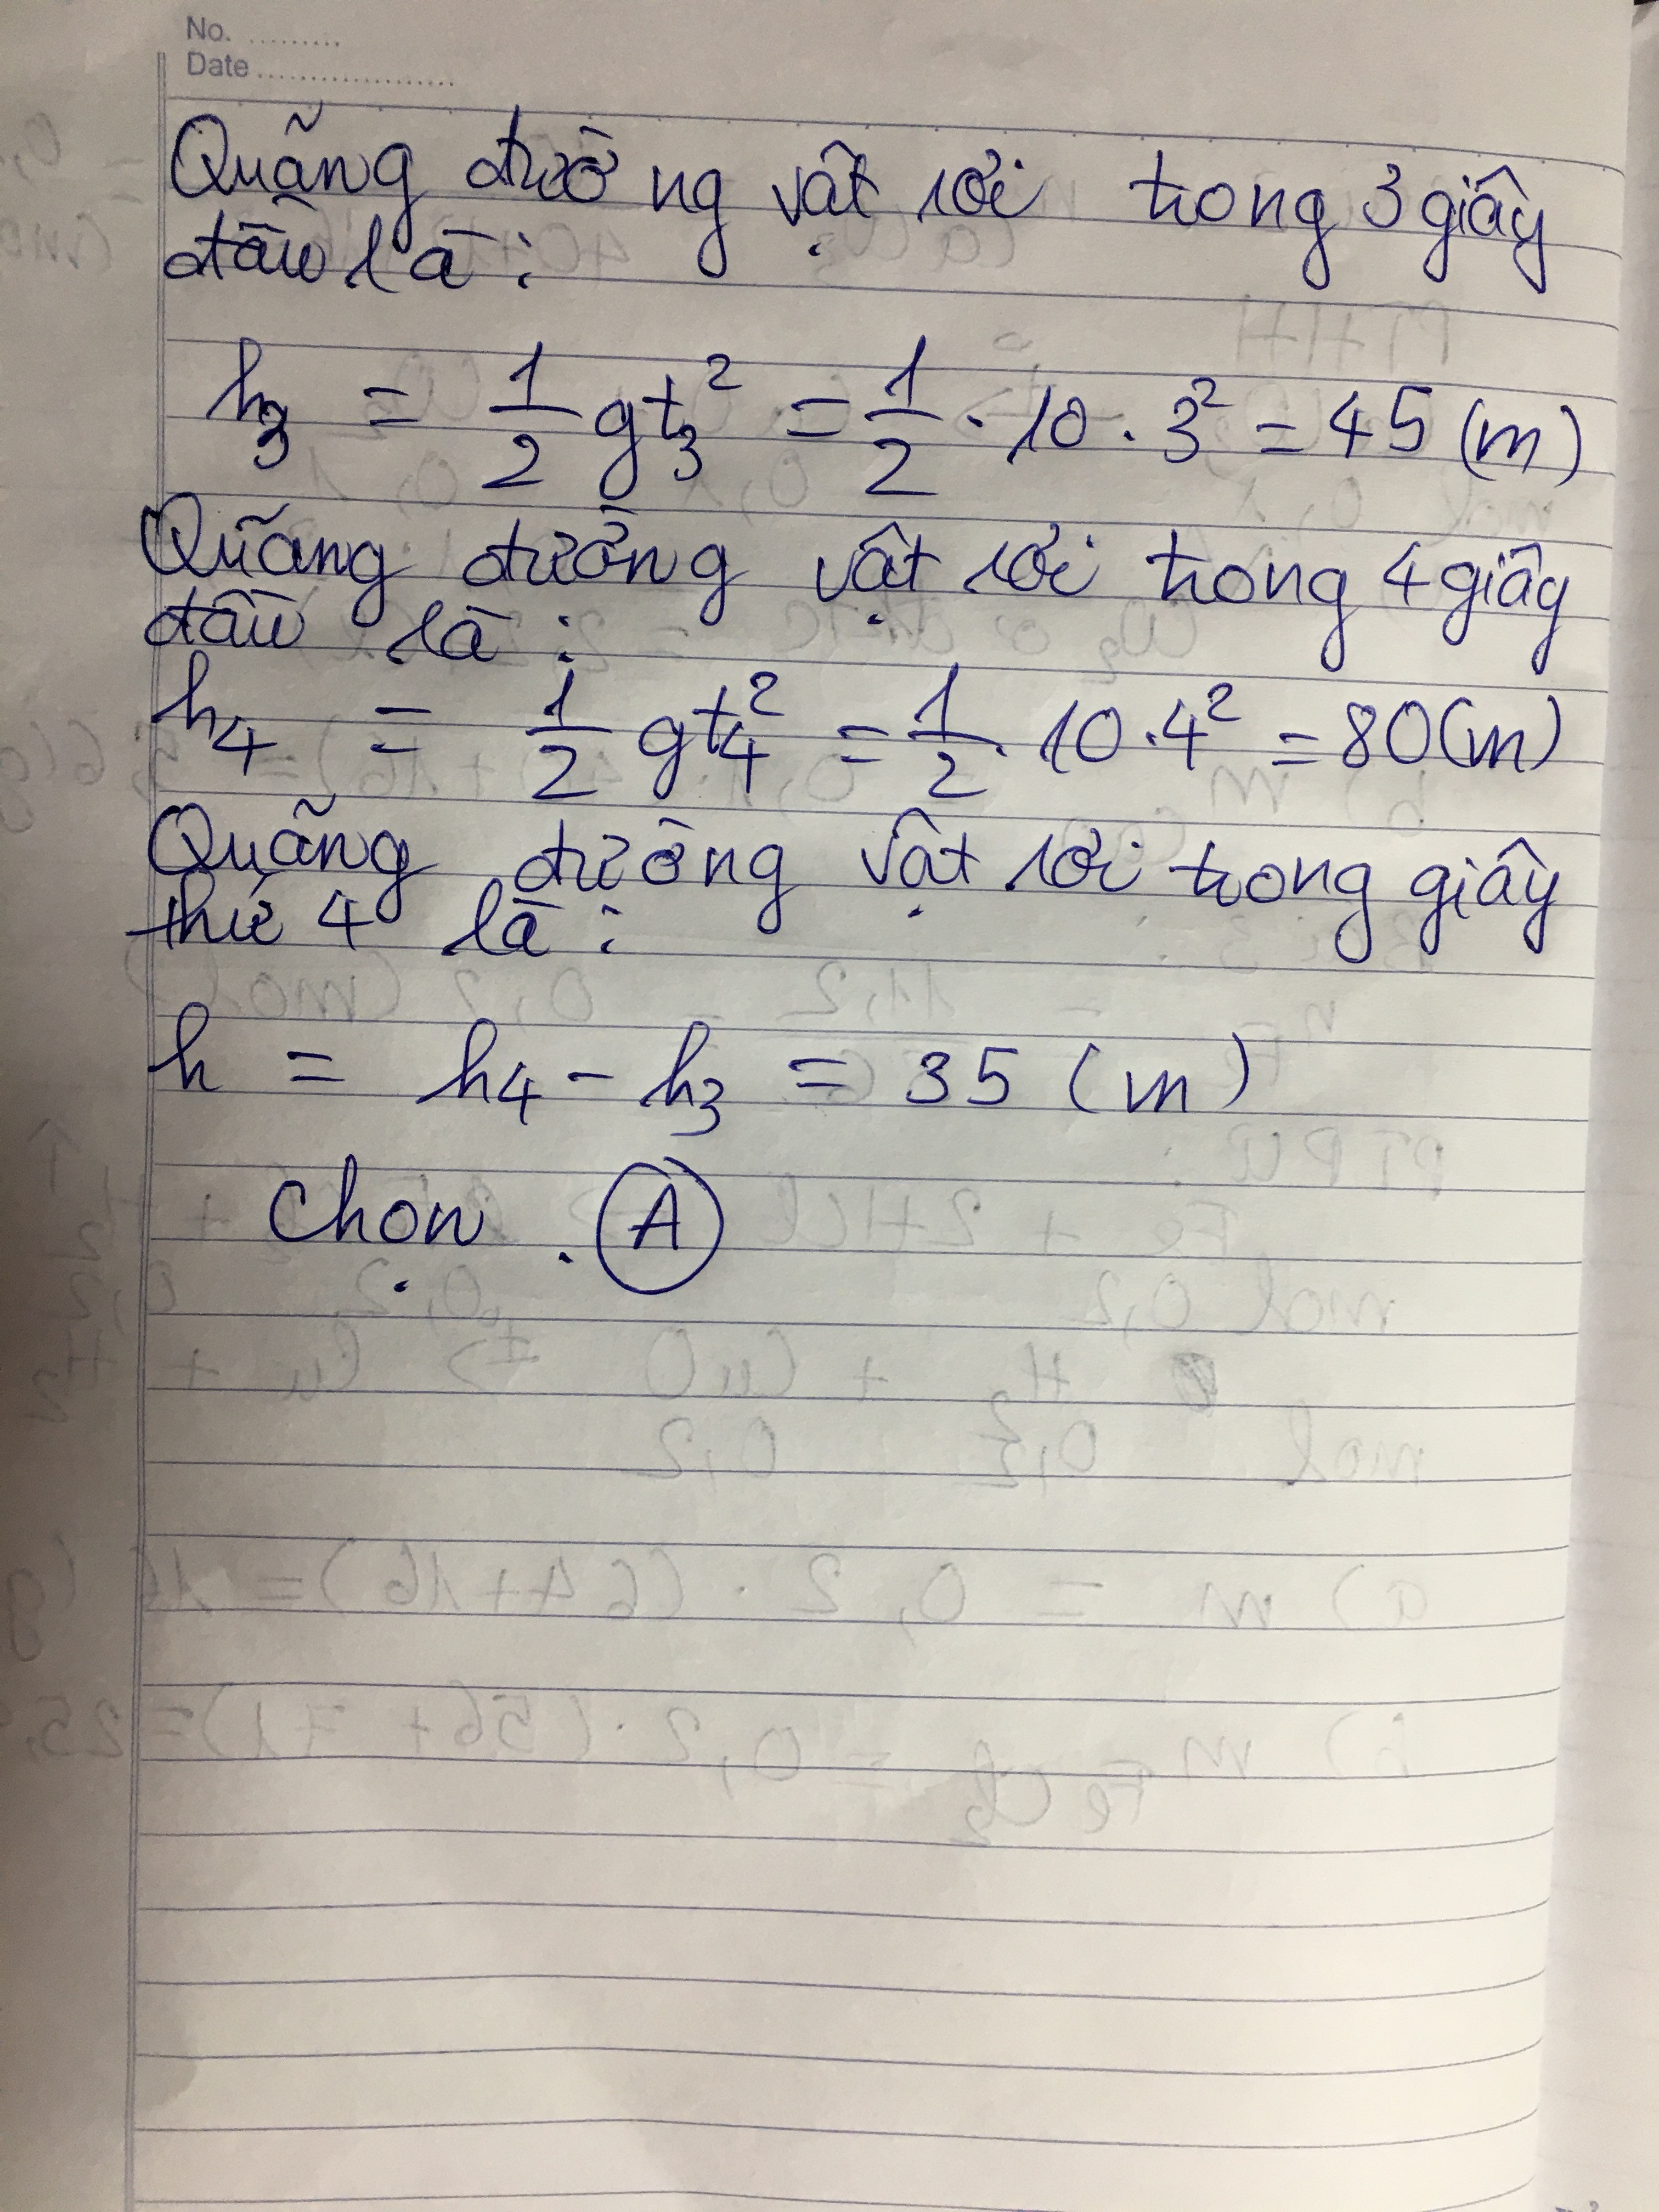 No. .........
Date ....................
Quãng đường vật rơi trong 3 giây
đầu là :
h₃ = 1/2 gt₃² = 1/2 . 10 . 3² = 45 (m)
Quãng đường vật rơi trong 4 giây
đầu là :
h₄ = 1/2 gt₄² = 1/2 . 10 . 4² = 80 (m)
Quãng đường vật rơi trong giây
thứ 4 là :
h = h₄ - h₃ = 35 (m)
Chọn . A